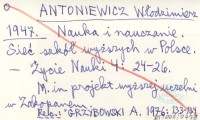 ANTONIEWICZ Włodzimierz
1947. Nauka i nauczanie.
Sieć szkół wyższych w Polsce.
– Życie Nauki 4: 24-26.
M.in. projekt wyższej uczelni
w Zakopanem.
Ref.: GRZYBOWSKI A. 1976: 133-134